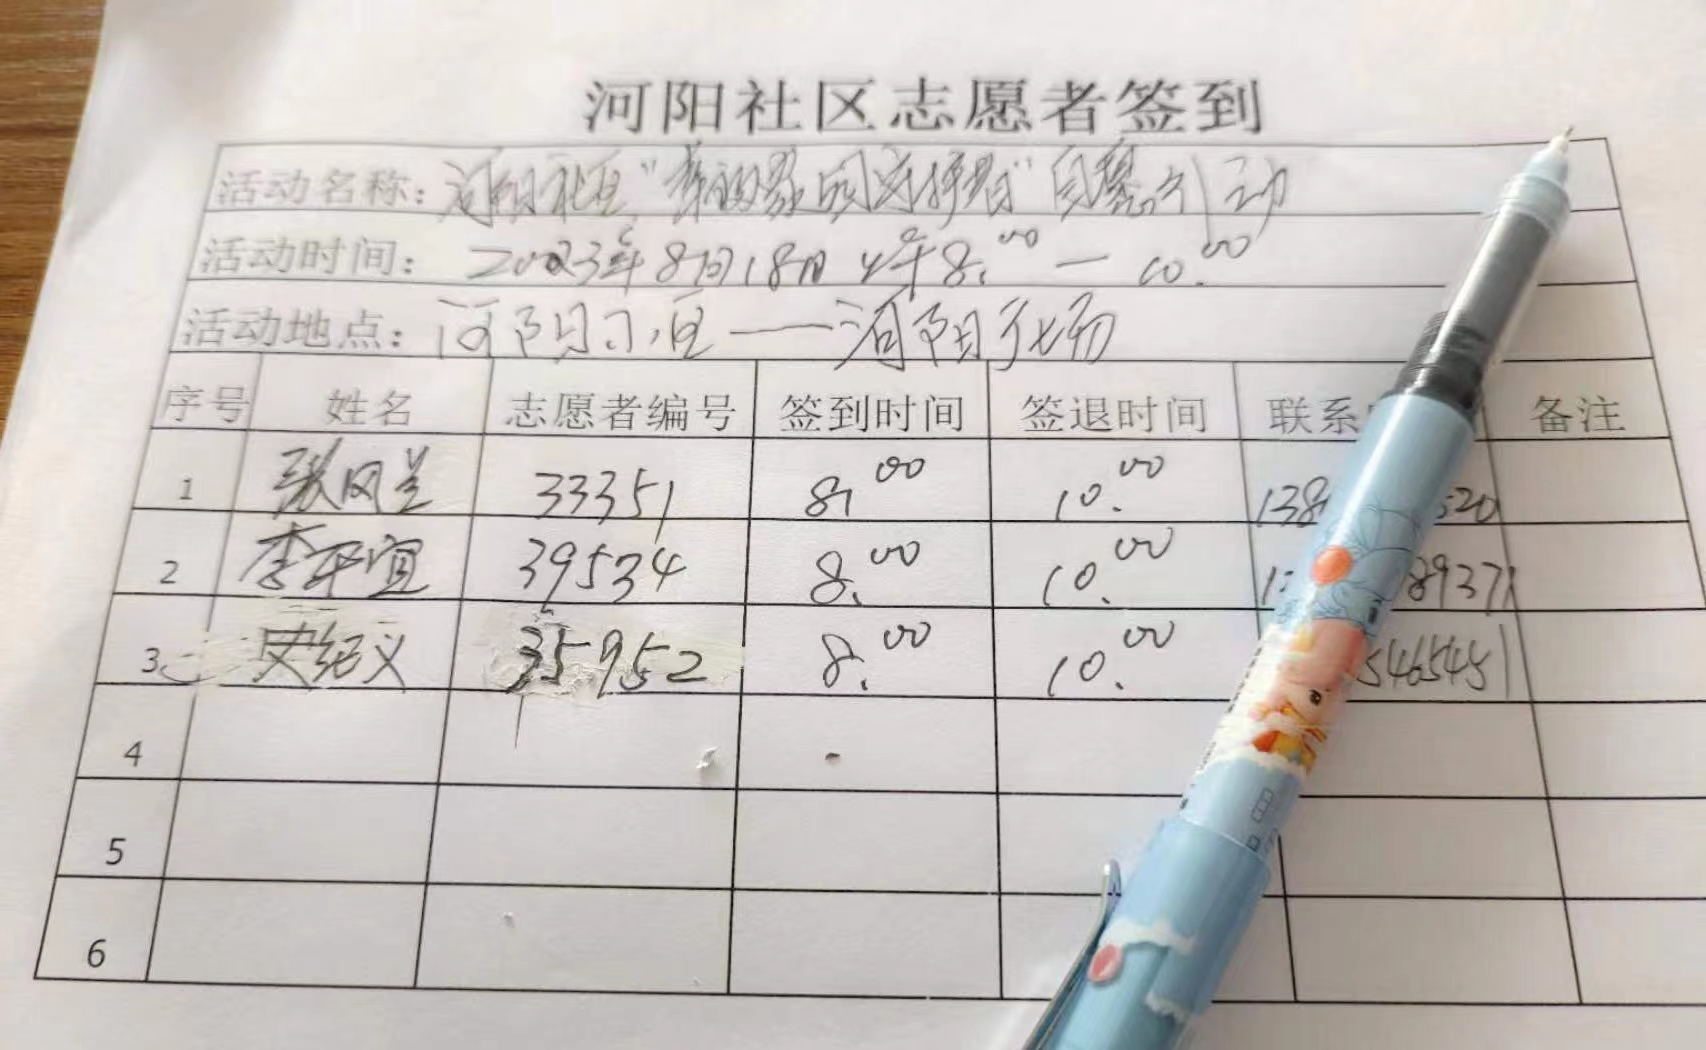 河阳社区志愿者签到
活动名称：河阳社区"建设家园守护者"自愿行动
活动时间：2023年8月18日 上午8:00—10:00
活动地点：河阳小区——河阳广场
序号 姓名 志愿者编号 签到时间 签退时间 联系 备注
1 张凤兰 33351 8:00 10:00 138 520
2 李平宜 39534 8:00 10:00 1 89371
3 史纪义 35952 8:00 10:00 546545
4
5
6